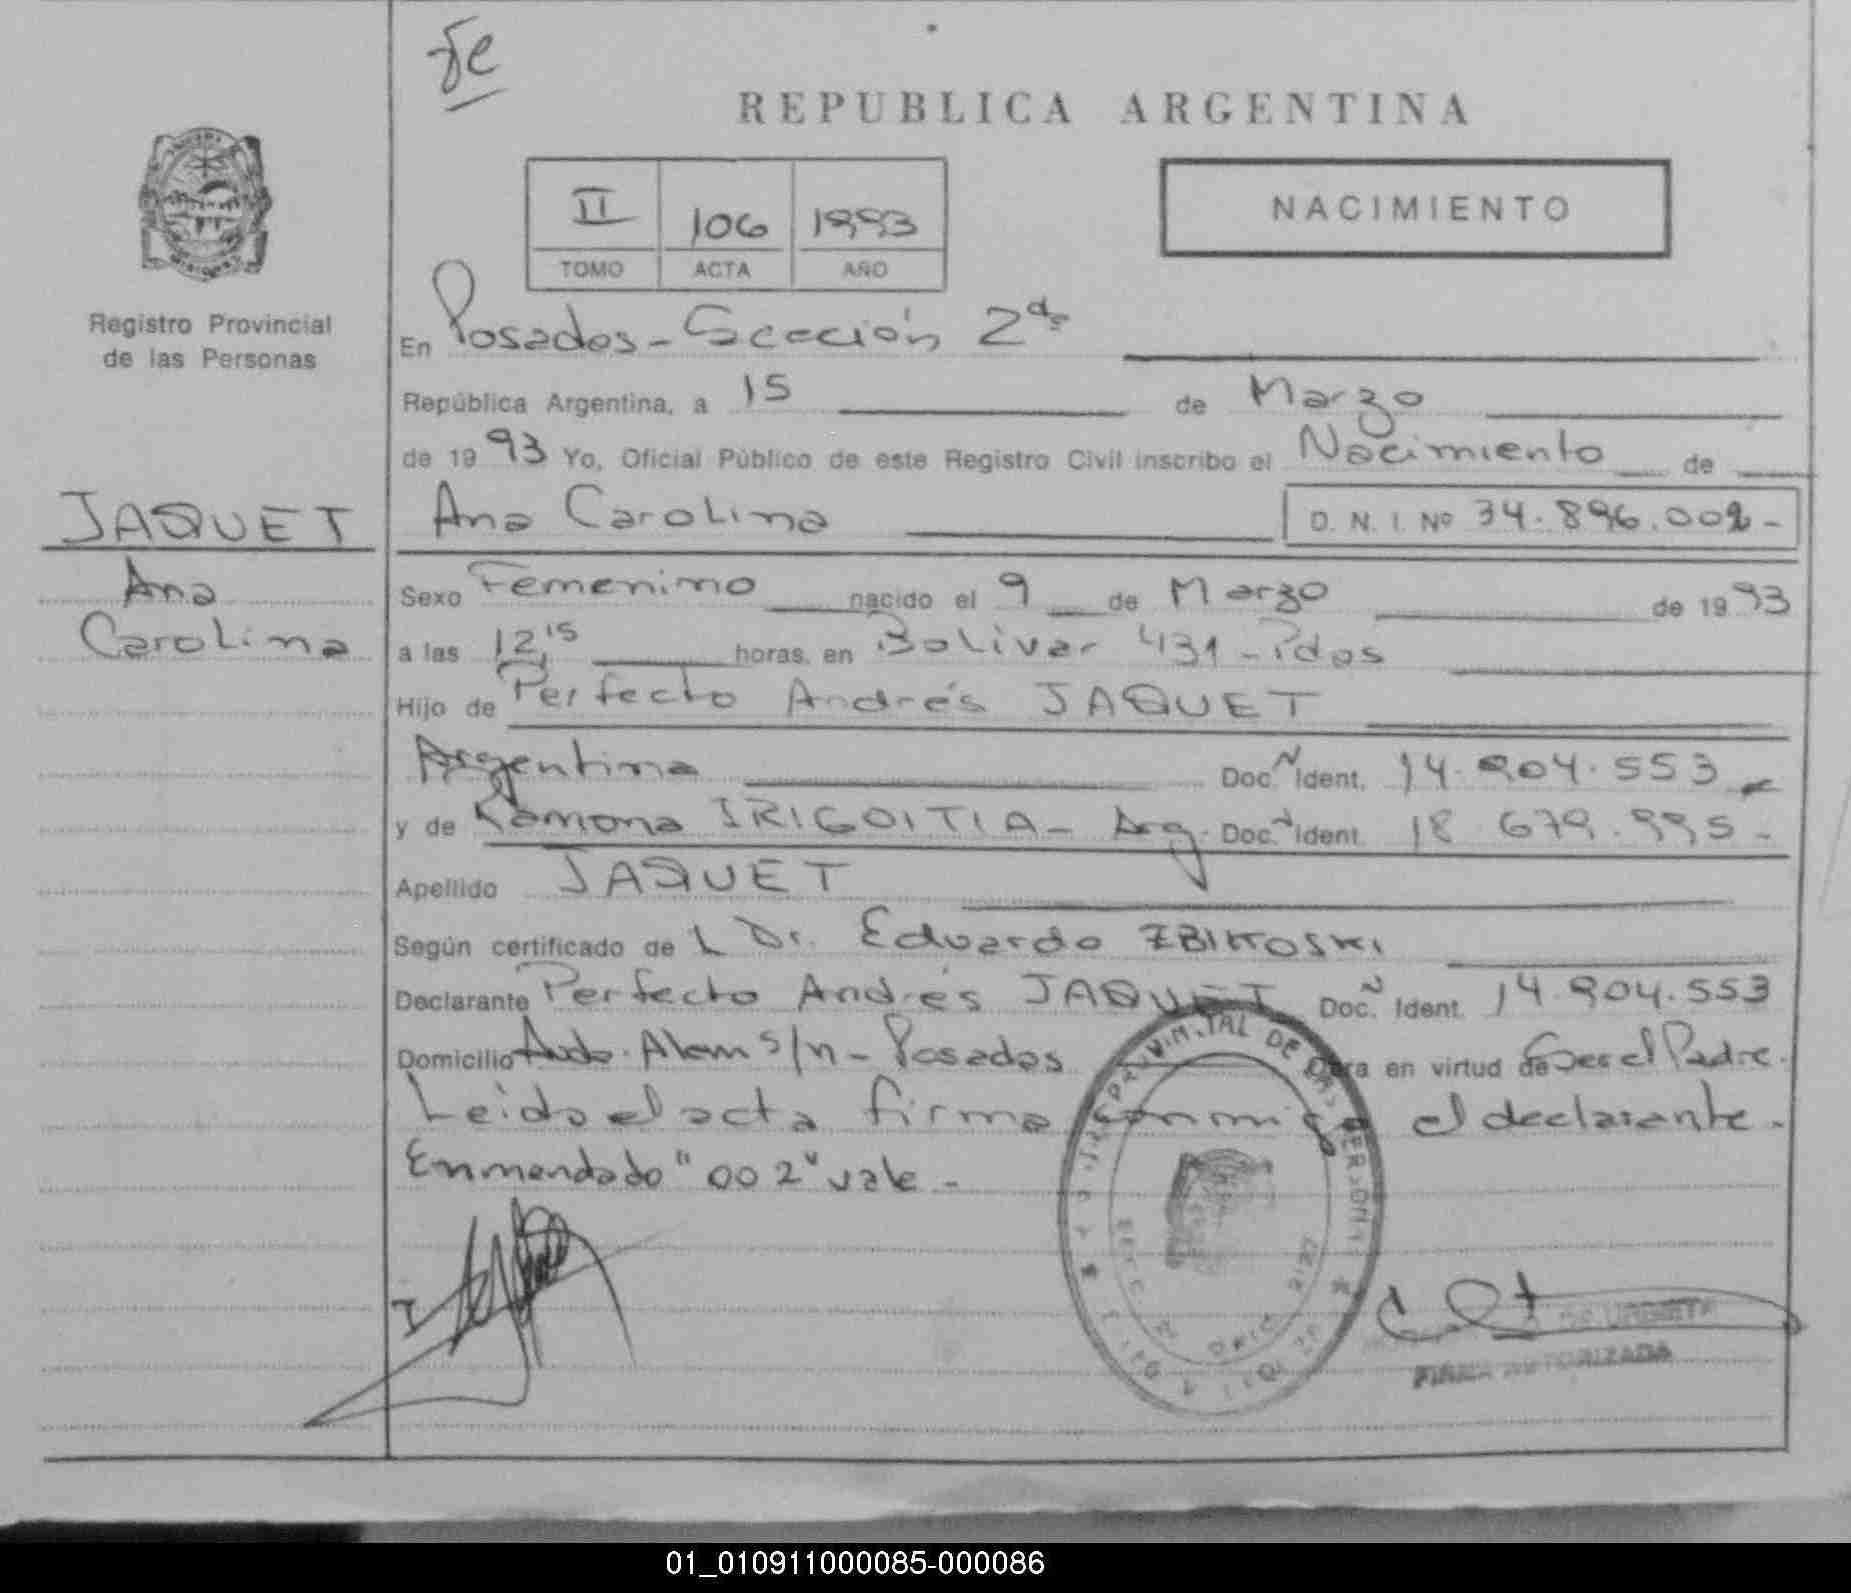 fe
REPUBLICA ARGENTINA
II 106 1993
TOMO ACTA AÑO
NACIMIENTO
Registro Provincial
de las Personas
JAQUET
Ana
Carolina
En Posadas - Sección 2da
República Argentina, a 15 de Marzo
de 1993 Yo, Oficial Público de este Registro Civil inscribo el Nacimiento de
Ana Carolina D. N. I. Nº 34.896.002-
Sexo Femenino nacido el 9 de Marzo de 1993
a las 12,15 horas, en Bolivar 431 - Pdas
Hijo de Perfecto Andrés JAQUET
Argentina Doc. N Ident. 14.904.553
y de Ramona IRIGOITIA - Arg. Doc. N Ident. 18 679.995-
Apellido JAQUET
Según certificado de L Dr. Eduardo ZBIKOSKI
Declarante Perfecto Andrés JAQUET Doc. N Ident. 14.904.553
Domicilio Avda. Alem s/n - Posadas Obra en virtud de Ser el Padre.
Leida el acta firma conmigo el declarante.
Enmendado "002" vale -
FIRMA AUTORIZADA
01_010911000085-000086